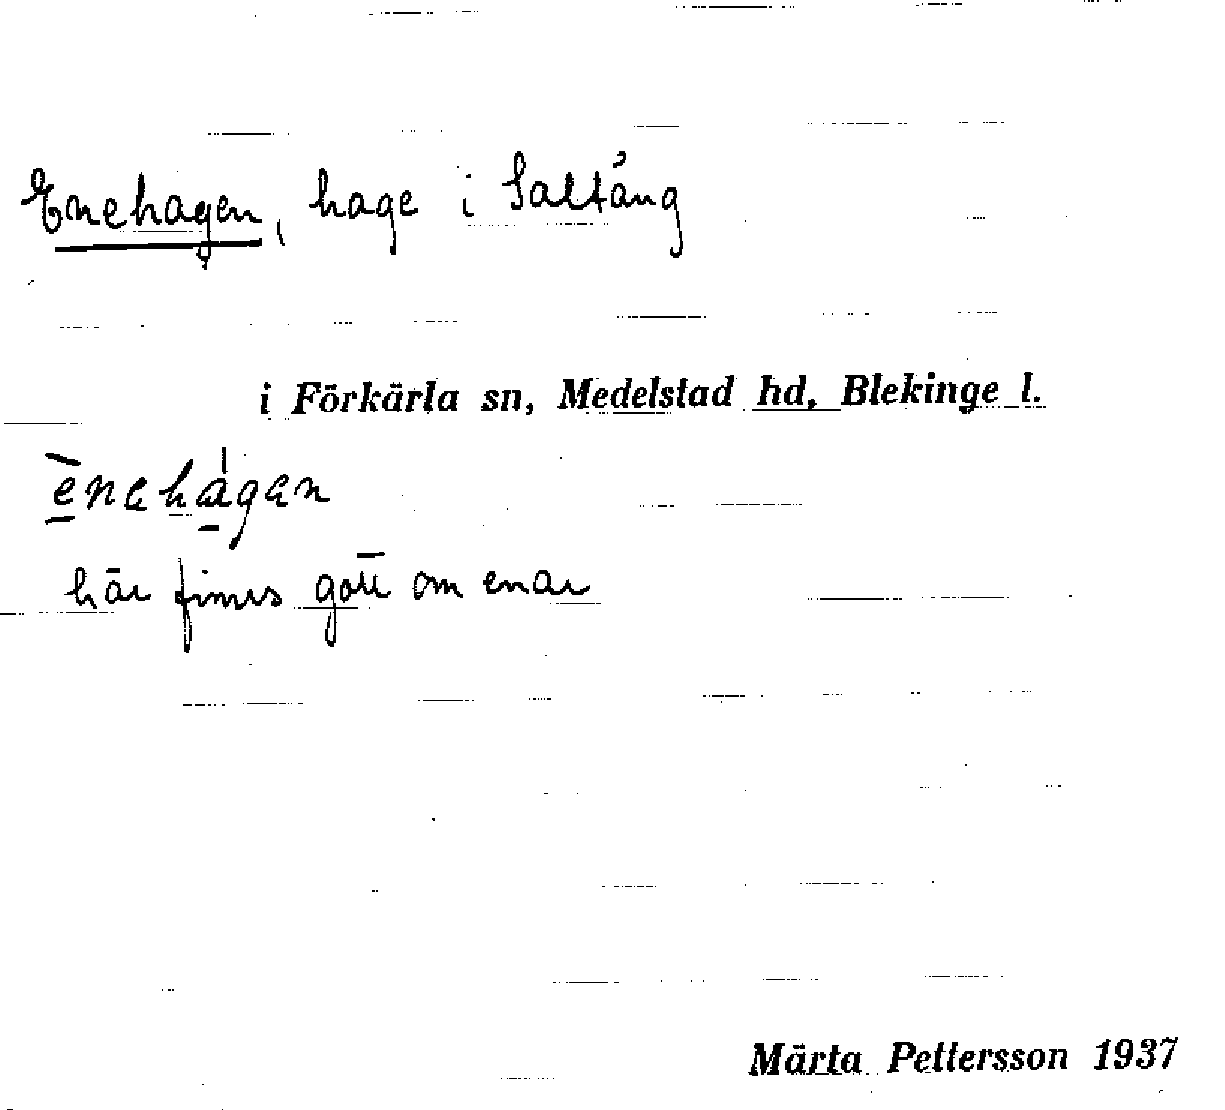 Enehagen, hage i Saltäng
i Förkärla sn, Medelstad hd, Blekinge l.
ènehágen
här finns gott om enar
Märta Pettersson 1937